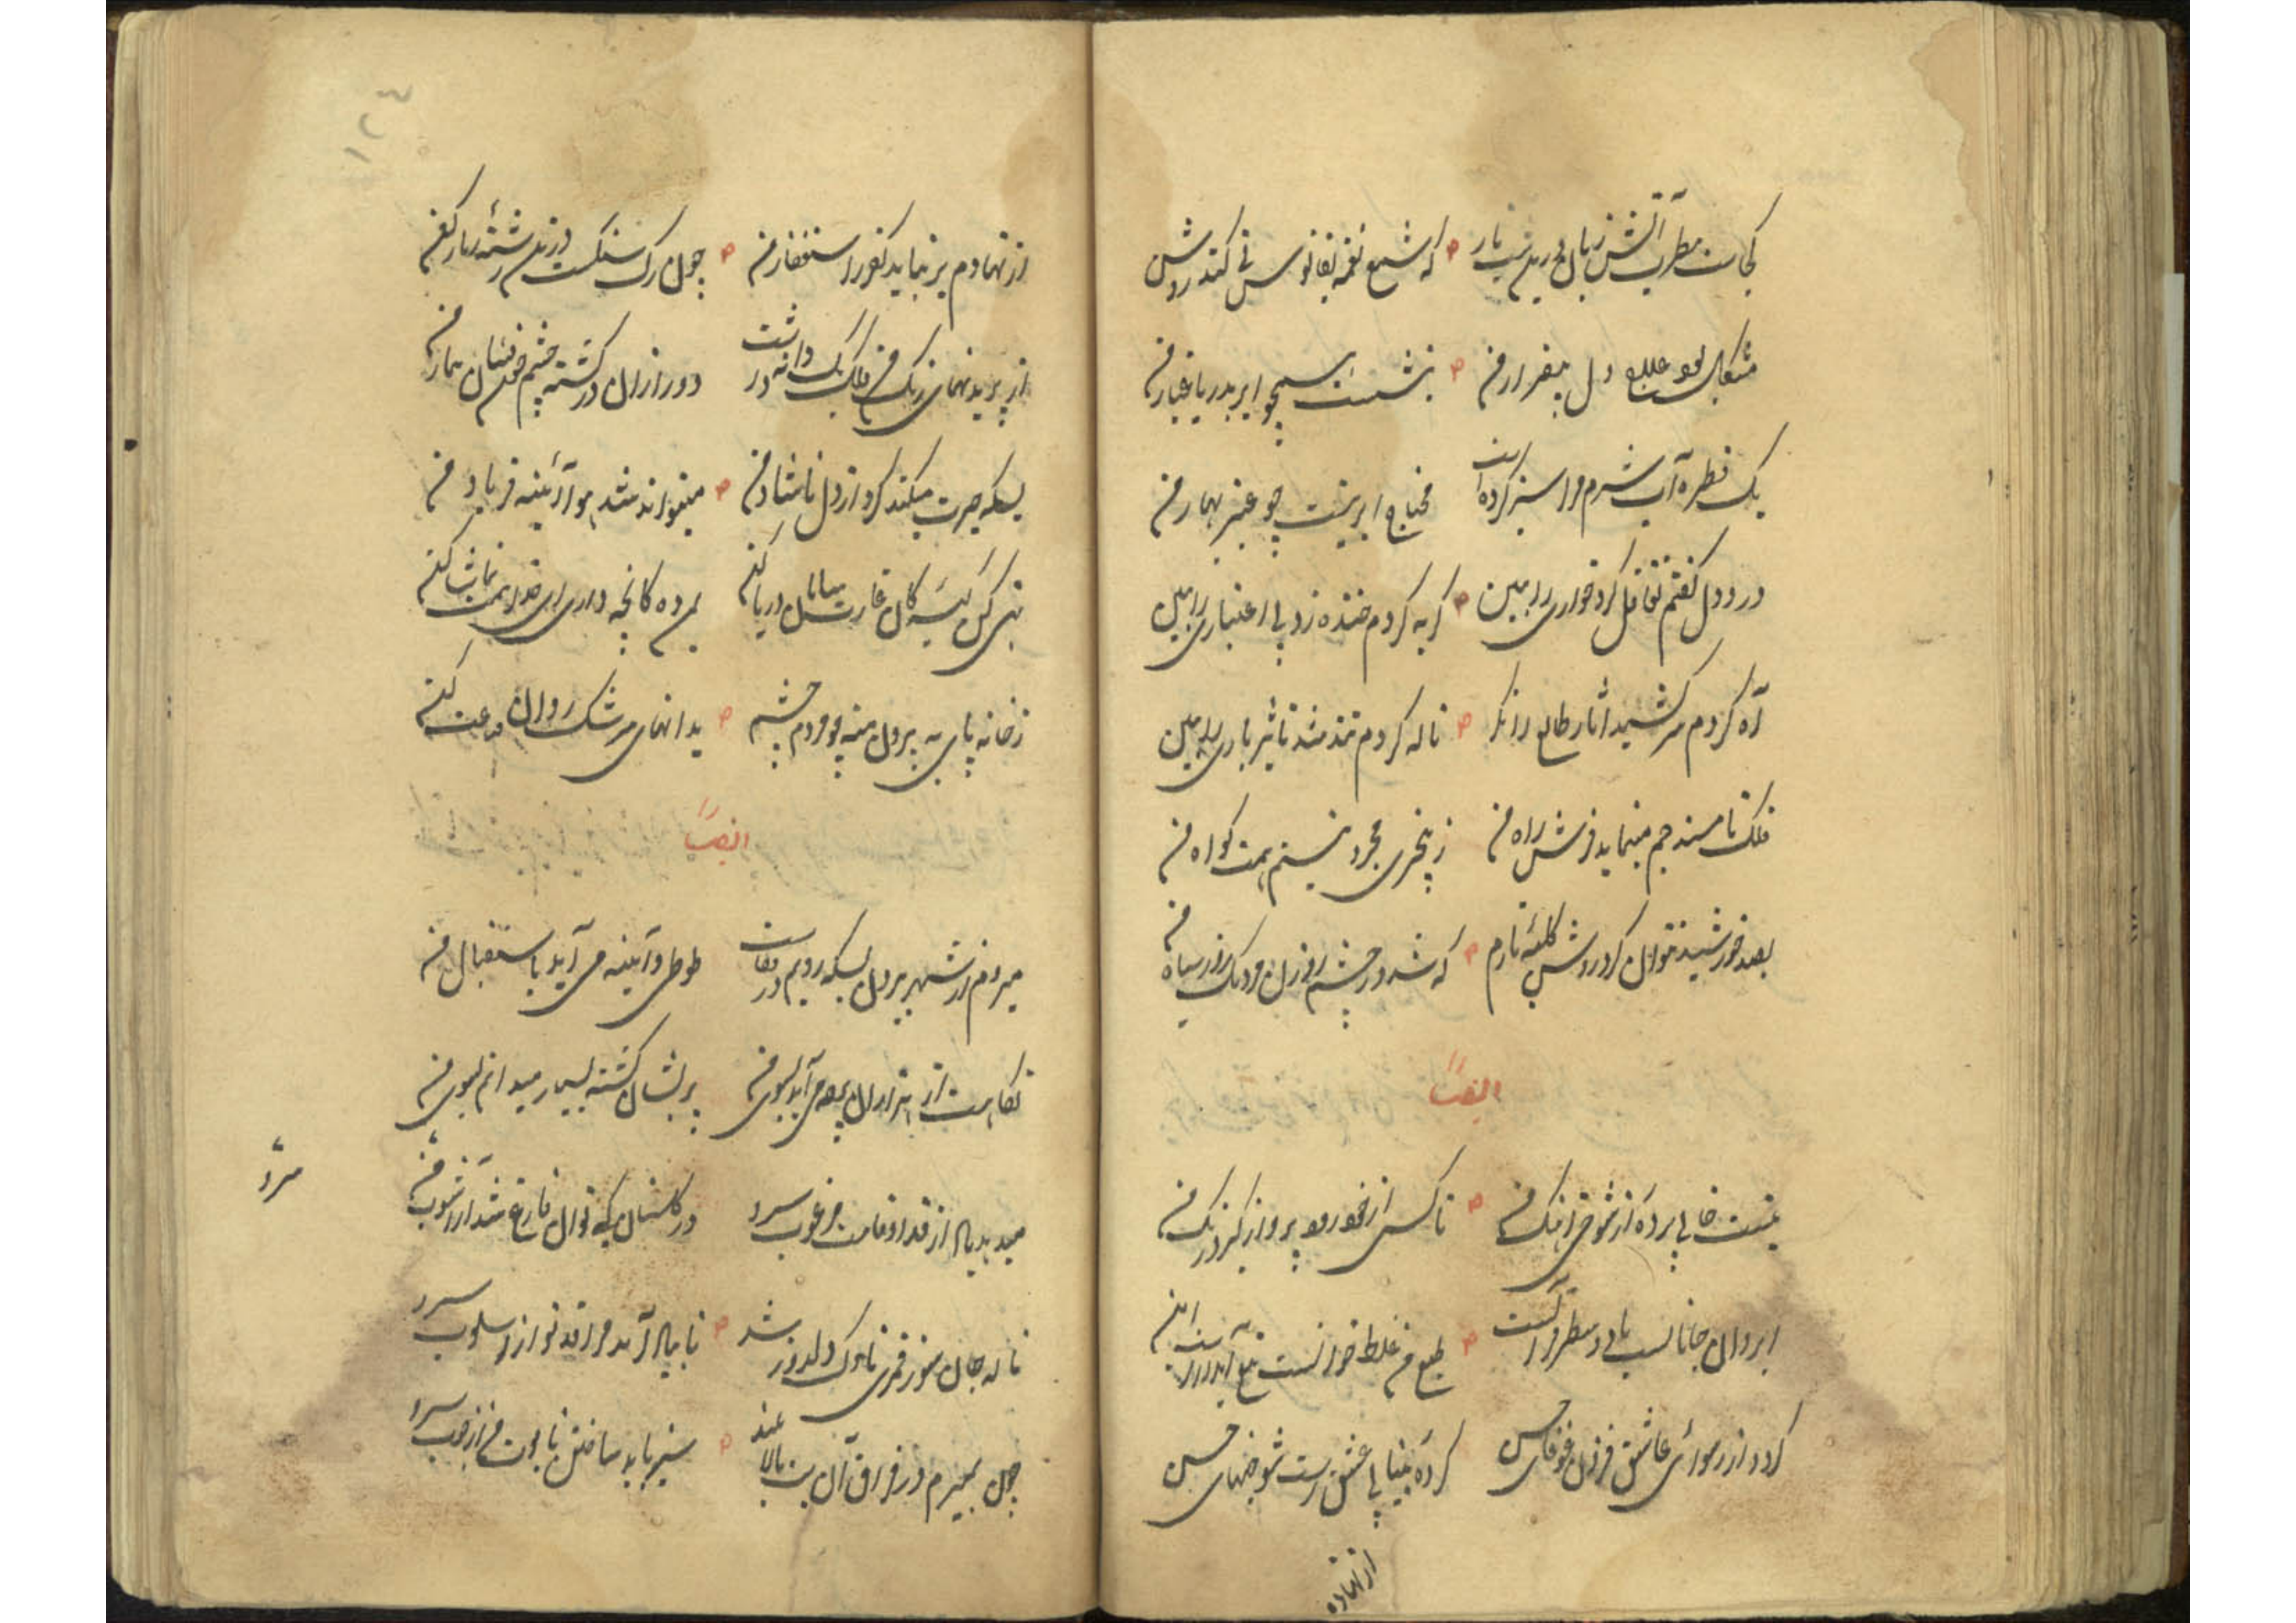 کجاست مطرب آتش زبان درین شب تار که شمع نغمه بفانوس نی کند روشن
مشکل بود علاج دل بیقرار من ننشست همچو ابر بدریا غبار من
یک قطره آب شرم مرا سبز کرده است محتاج ابر نیست چو عنبر بهار من
درد دل گفتم تغافل کرد خواری را ببین گریه کردم خنده زد بی اعتباری را ببین
آه کردم سرکشید آثار طالع را نگر ناله کردم تند شد تاثیر یاری را ببین
فلک تا مسند جم مینماید فرش راه من ز بیخری مجرد نیستم همت گواه من
بصد خورشید نتوان کرد روشن کلبه تارم که شد در چشم روزن مردمک روز سیاه من
ایضاً
نیست خالی پرده از شوخی آهنگ من تا کس از خود رود پرواز گیرد رنگ من
ابروان جانانست یا دو مطرح آتشست طبع من غلط خوانست تیغ آبدارست این
کردد از رسوائی عاشق فزون غوغای حسن کرده بیتابی عشقست شوخیهای حسن
از نهاده
از نهادم بر نیاید کفر استغفار من چون رگ سنگست در تن رشته زنار کفر من
از پریدنهای رنگ من فلک یک دانه داشت دور از آن در گشته چشم خونفشان بیمار من
بسکه حیرت میکند گرد از دل ناشاد من میتواند شد هوا آئینه فریاد من
تهی کن کیسه کان غارت سامان دریا کن بمن ده کانچه داری ای خدا همت تماشا کن
ز خانه پای به بیرون منه چو مردم چشم بدانهای سرشک روان قناعت کن
ایضاً
میروم از شهر بیرون بسکه رویم در قفاست طوطی و آئینه می آید باستقبال من
نکاهت از هزاران به چه می آید بسوی من پریشان گشته بسیار میدانم بسوی من
میدهد یاد از قد او قامت مرغوب سرو در گلستان کی توان فارغ شد از آشوب سرو
ناله جان سوز قمری ناوک دلدوز شد تا بیاد آمد مرا قد تو از اسلوب سرو
چون بمیرم در فراق آن بت بالا بلند سبز باید ساختن تابوت من از چوب سرو